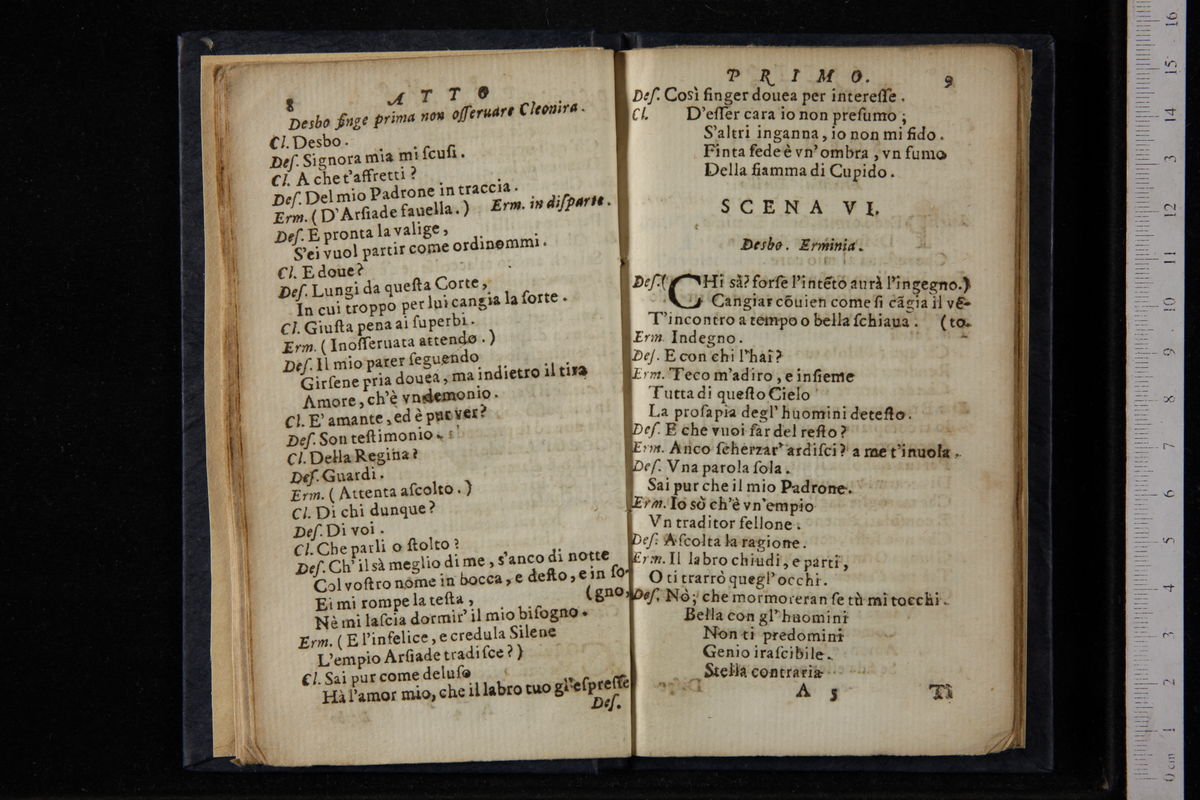 8 ATTO
Desbo finge prima non osseruare Cleonira.
Cl. Desbo.
Deſ. Signora mia mi ſcuſi.
Cl. A che t'affretti?
Deſ. Del mio Padrone in traccia.
Erm. (D'Arſiade fauella.) Erm. in diſparte.
Deſ. E pronta la valige,
S'ei vuol partir come ordinommi.
Cl. E doue?
Deſ. Lungi da queſta Corte,
In cui troppo per lui cangia la ſorte.
Cl. Giuſta pena ai ſuperbi.
Erm. (Inoſſeruata attendo.)
Deſ. Il mio parer ſeguendo
Girſene pria douea, ma indietro il tira
Amore, ch'è vn demonio.
Cl. E' amante, ed è pur ver?
Deſ. Son teſtimonio.
Cl. Della Regina?
Deſ. Guardi.
Erm. (Attenta aſcolto.)
Cl. Di chi dunque?
Deſ. Di voi.
Cl. Che parli o ſtolto?
Deſ. Ch'il sà meglio di me, s'anco di notte
Col voſtro nome in bocca, e deſto, e in ſo-
Ei mi rompe la teſta, (gno,
Nè mi laſcia dormir' il mio biſogno.
Erm. (E l'infelice, e credula Silene
L'empio Arſiade tradiſce?)
Cl. Sai pur come deluſo
Hà l'amor mio, che il labro tuo gl'eſpreſſe
Deſ.
PRIMO. 9
Deſ. Così finger douea per intereſſe.
Cl. D'eſſer cara io non preſumo;
S'altri inganna, io non mi fido.
Finta fede è vn' ombra, vn fumo
Della fiamma di Cupido.
SCENA VI.
Desbo. Erminia.
Deſ. (CHi sà? forſe l'intẽto aurà l'ingegno.)
Cangiar cõuien come ſi cãgia il vẽ-
T'incontro a tempo o bella ſchiaua. (to.
Erm. Indegno.
Deſ. E con chi l'hai?
Erm. Teco m'adiro, e inſieme
Tutta di queſto Cielo
La proſapia degl' huomini deteſto.
Deſ. E che vuoi far del reſto?
Erm. Anco ſcherzar' ardiſci? a me t'inuola.
Deſ. Vna parola ſola.
Sai pur che il mio Padrone.
Erm. Io sò ch'è vn'empio
Vn traditor fellone.
Deſ. Aſcolta la ragione.
Erm. Il labro chiudi, e parti,
O ti trarrò quegl' occhi.
Deſ. Nò; che mormoreran ſe tù mi tocchi.
Bella con gl' huomini
Non ti predomini
Genio iraſcibile.
Stella contraria
A 5 Ti